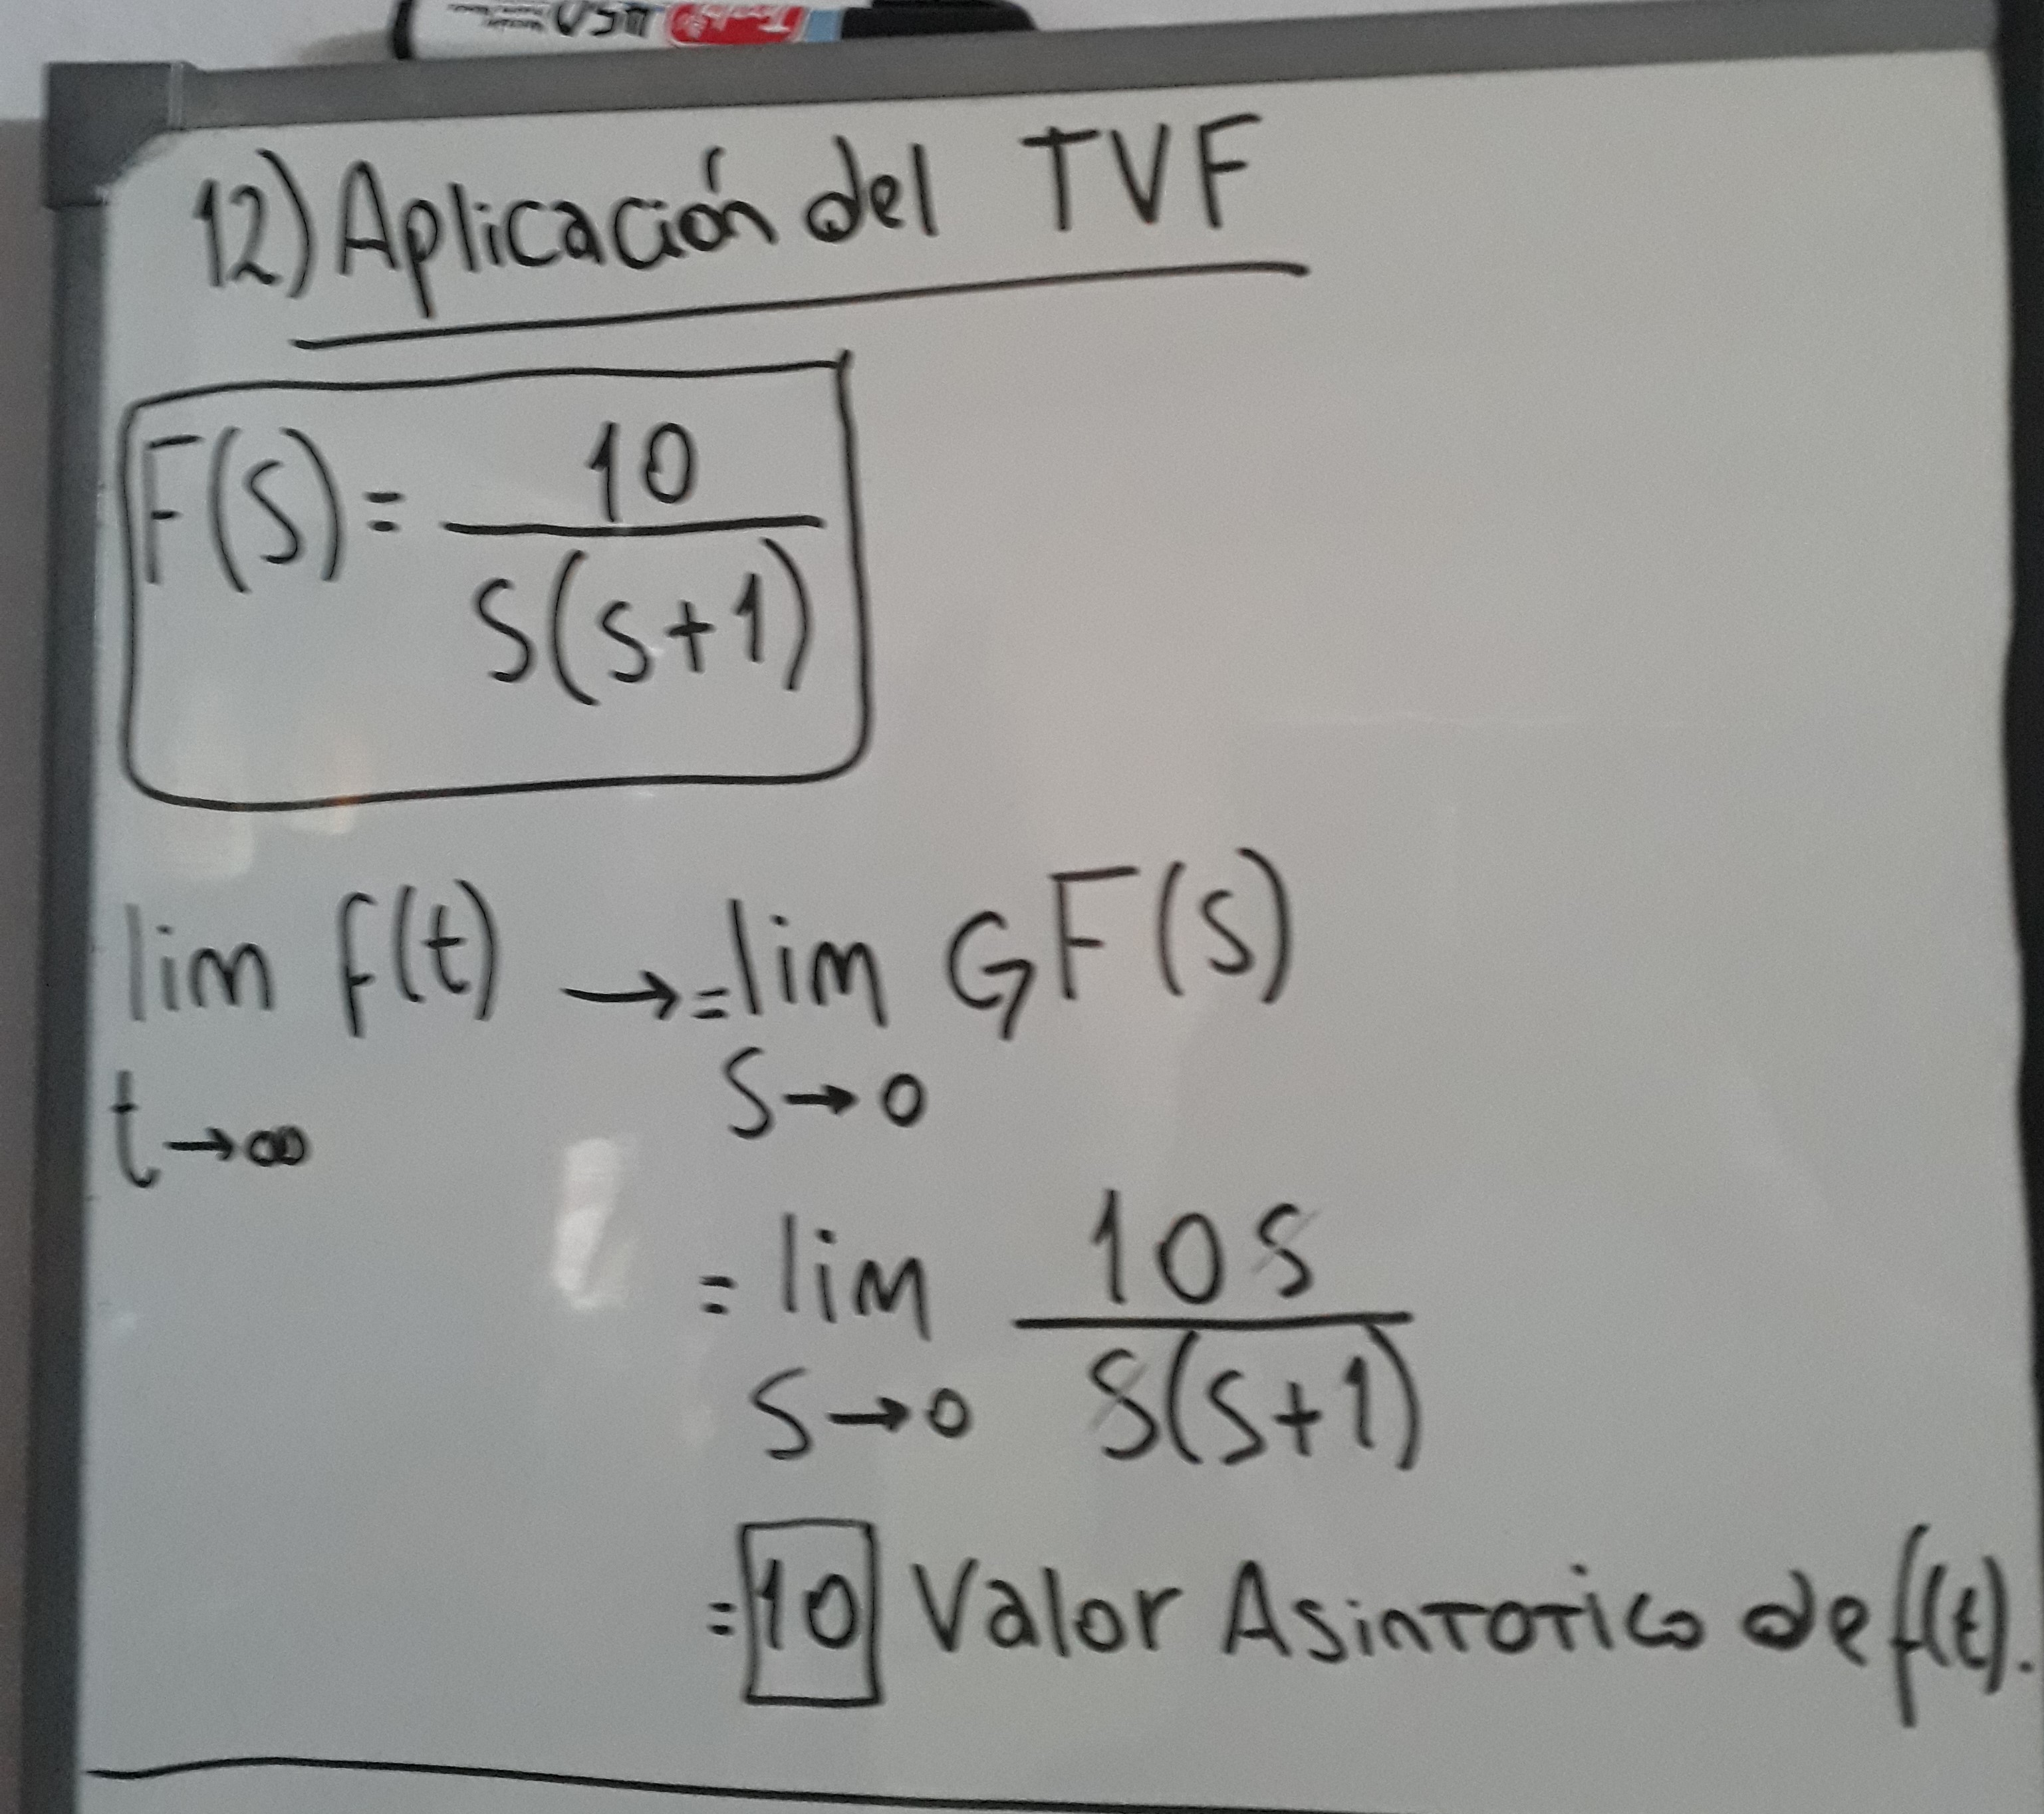 12) Aplicación del TVF
F(S) = 10
S(s+1)
lim f(t) → = lim GF(S)
t→∞ S→0
= lim 10s
S→0 S(s+1)
= 10 Valor Asintotico de f(t).